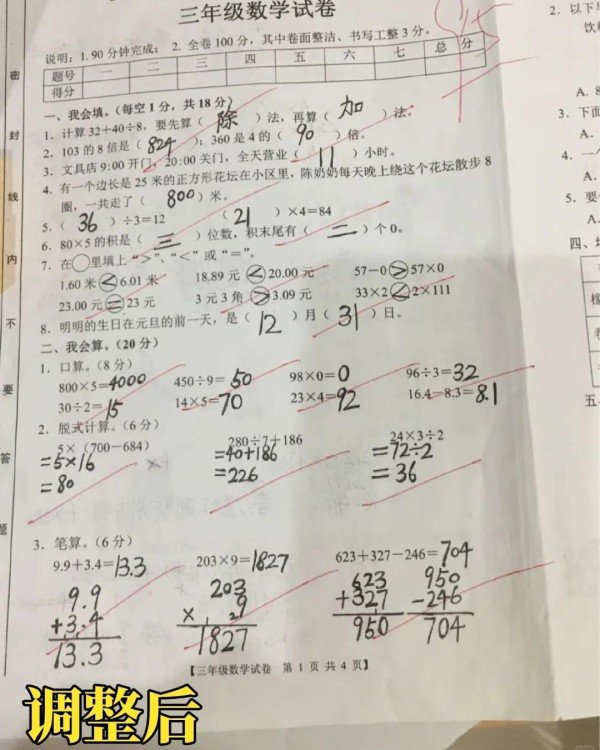 三年级数学试卷
说明：1. 90 分钟完成； 2. 全卷 100 分，其中卷面整洁、书写工整 3 分。
题号 一 二 三 四 五 六 七 总 分
得分
一、我会填。(每空 1 分，共 18 分)
1．计算 32＋40÷8，要先算（ 除 ）法，再算（ 加 ）法。
2．103 的 8 倍是（ 824 ）；360 是 4 的（ 90 ）倍。
3．文具店 9:00 开门，20:00 关门，全天营业（ 11 ）小时。
4．有一个边长是 25 米的正方形花坛在小区里，陈奶奶每天晚上绕这个花坛散步 8
圈，一共走了（ 800 ）米。
5．（ 36 ）÷3＝12 （ 21 ）×4＝84
6．80×5 的积是（ 三 ）位数，积末尾有（ 二 ）个 0。
7．在○里填上“＞”、“＜”或“＝”。
1.60 米＜6.01 米 18.89 元＜20.00 元 57－0＞57×0
23.00 元＝23 元 3 元 3 角＞3.09 元 33×2＜2×111
8．明明的生日在元旦的前一天，是（ 12 ）月（ 31 ）日。
二、我会算。(20 分)
1．口算。(8 分)
800×5＝4000 450÷9＝50 98×0＝0 96÷3＝32
30÷2＝15 14×5＝70 23×4＝92 16.4－8.3＝8.1
2．脱式计算。(6 分)
5×（700－684） 280÷7＋186 24×3÷2
=5×16 =40+186 =72÷2
=80 =226 =36
3．笔算。(6 分)
9.9＋3.4＝13.3 203×9＝1827 623＋327－246＝704
9.9 203 623 950
+3.4 × 9 +327 -246
13.3 1827 950 704
【三年级数学试卷 第 1 页 共 4 页】
密
封
线
内
不
要
答
题
2．以下
饮料
A. 8
3．下面
A.
4．一个
A.
5．要
A.
四、
五、
调整后